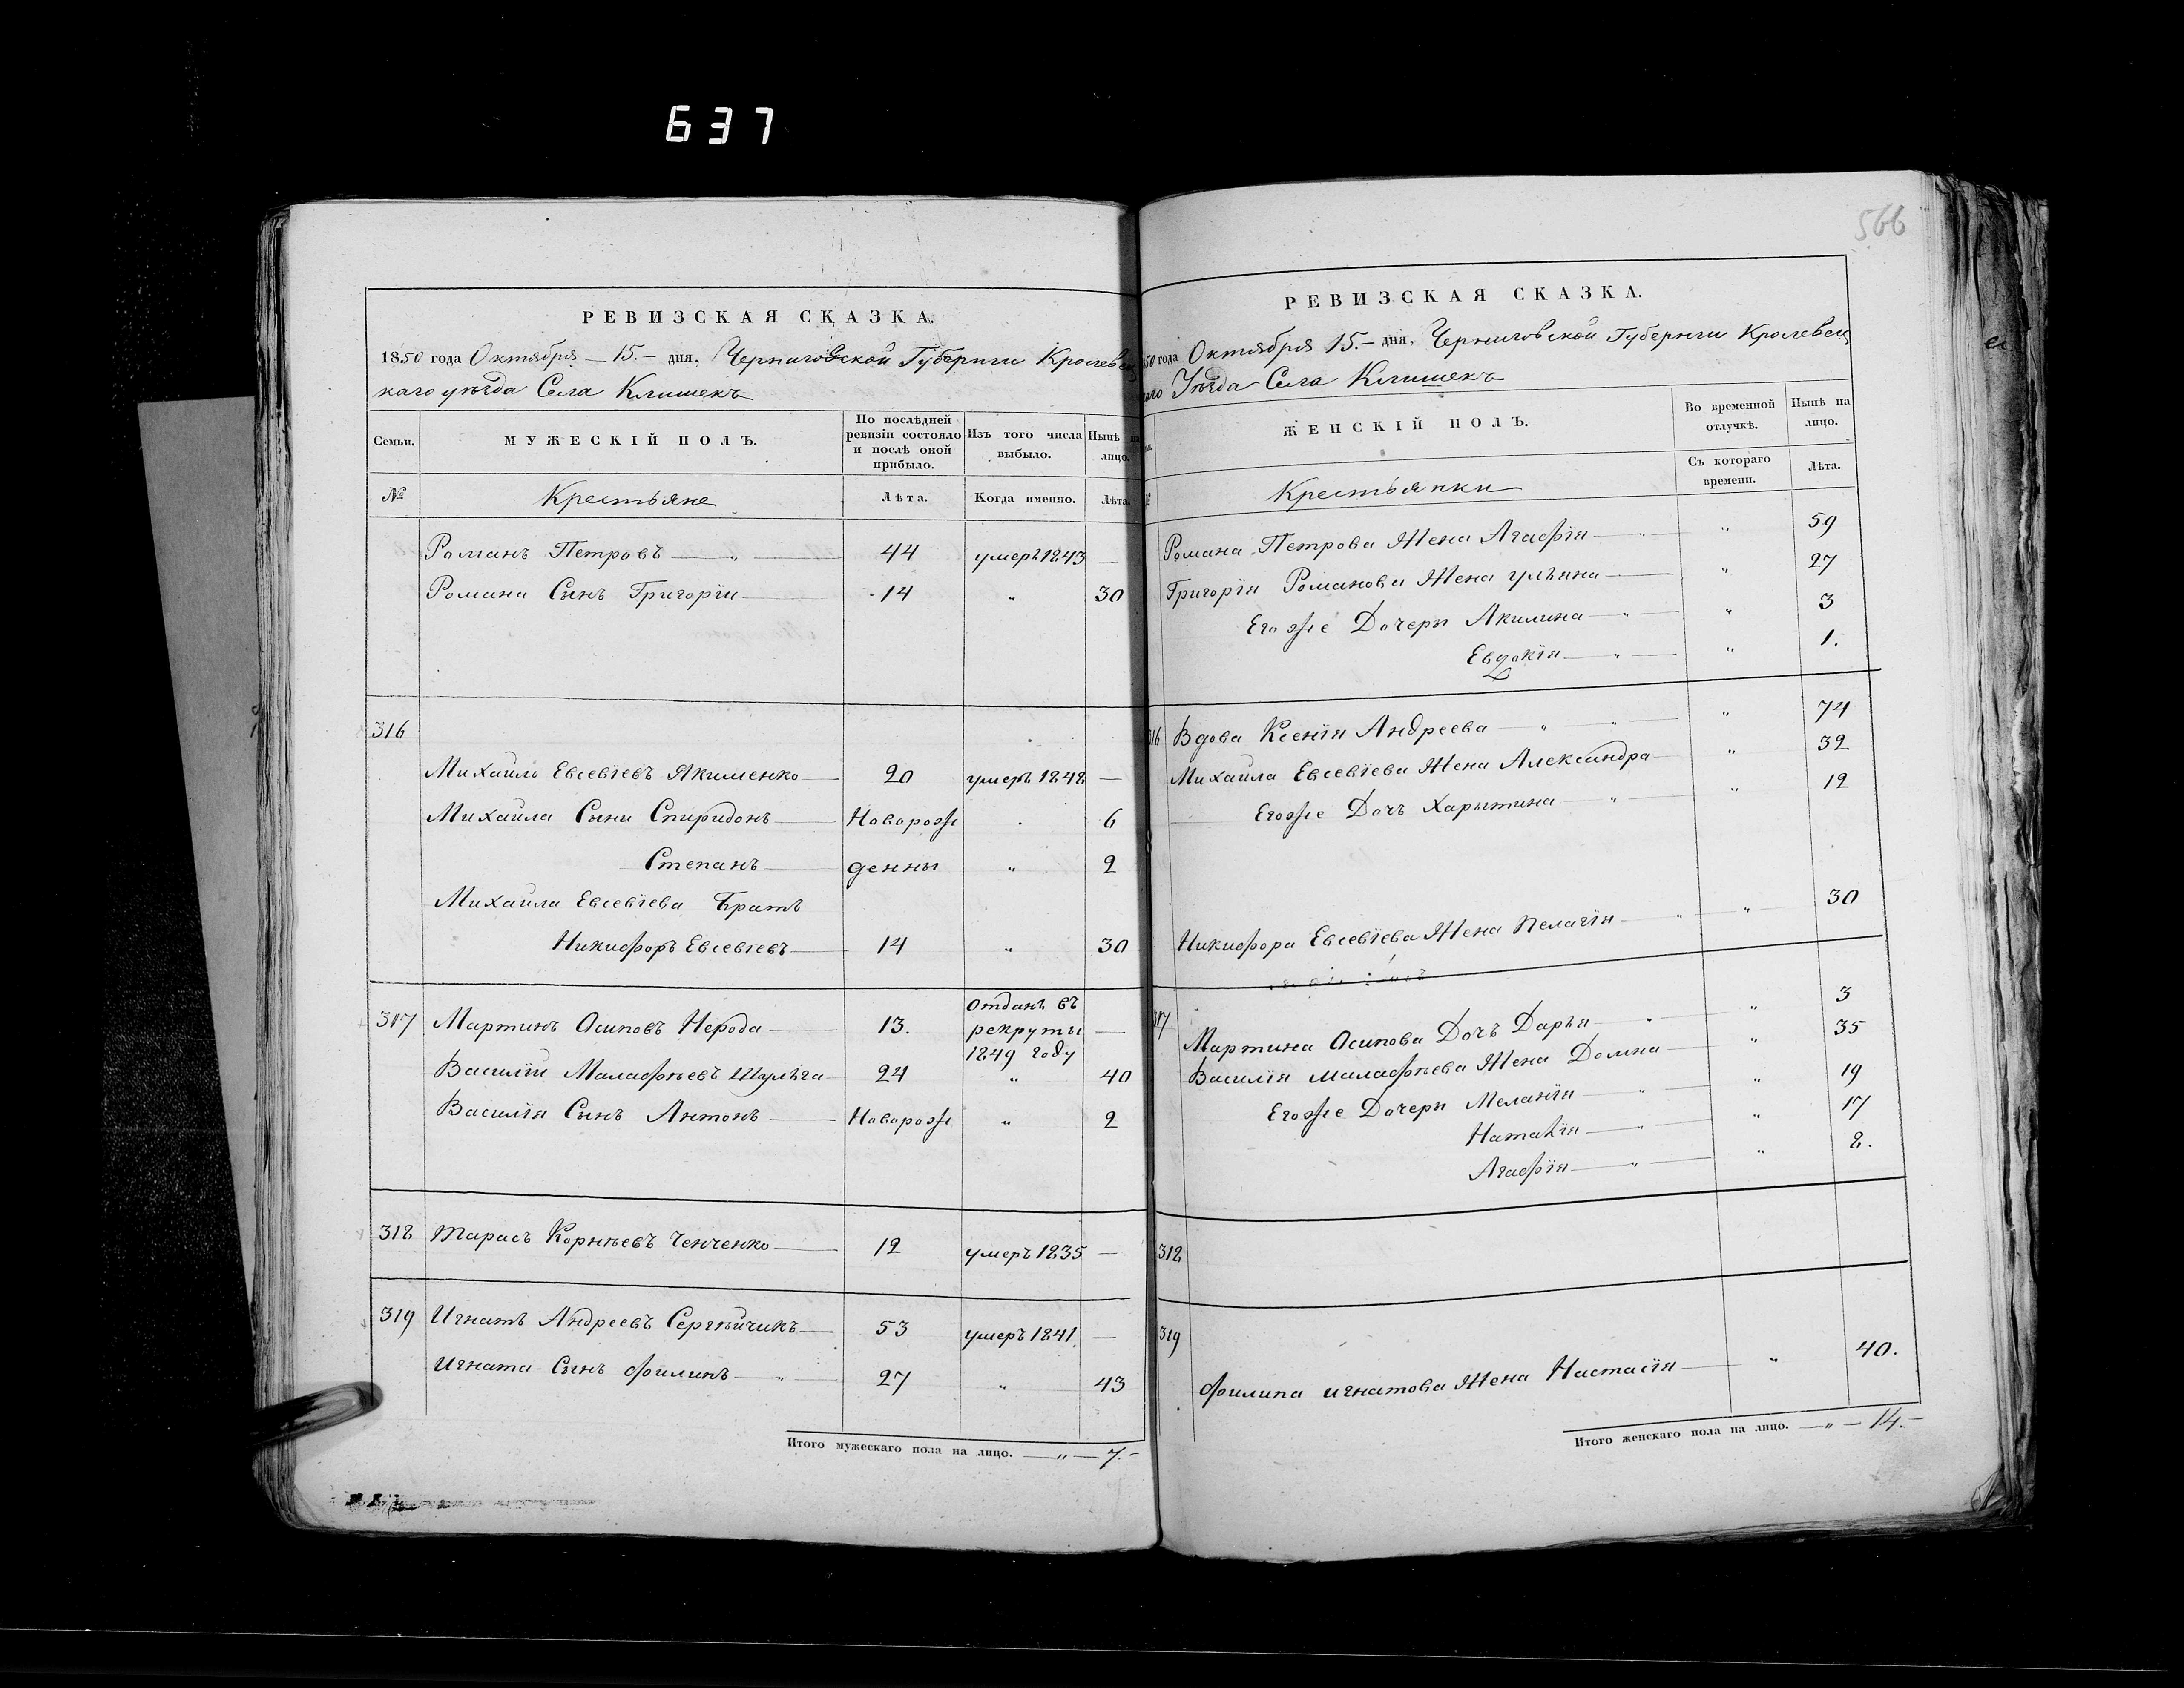 637
566
РЕВИЗСКАЯ СКАЗКА.
1850 года Октября 15. дня, Черниговской Губернии Кролевец
каго уѣзда Села Клишекъ
Семьи.
МУЖЕСКІЙ ПОЛЪ.
По послѣдней ревизіи состояло и послѣ оной прибыло.
Изъ того числа выбыло.
Нынѣ на лицо.
№
Крестьяне
Лѣта.
Когда именно.
Лѣта.
Романъ Петровъ — „ — 44 умеръ 1843 —
Романа Сынъ Григорій — 14 „ 30
316
Михайло Евсевіевъ Якименко — 20 умеръ 1848 —
Михайла Сыни Спиридонъ — Новорож „ 6
Степанъ — денны „ 2
Михайла Евсевіева Братъ
Никифоръ Евсевіевъ — 14 „ 30
317 Мартинъ Осиповъ Нерода — 13. Отданъ въ рекруты 1849 году —
Василій Малафѣевъ Шульга — 24 „ 40
Василія Сынъ Антонъ — Новорож „ 2
318 Тарасъ Корнѣевъ Ченченко — 12 умеръ 1835 —
319 Игнатъ Андреевъ Сергѣйчикъ — 53 умеръ 1841. —
Игната Сынъ Филипъ — „ 27 „ 43
Итого мужескаго пола на лицо. — „ — 7. —
РЕВИЗСКАЯ СКАЗКА.
50 года Октября 15. — дня, Черниговской Губернии Кролевец
каго Уѣзда Села Клишекъ
ЖЕНСКІЙ ПОЛЪ.
Во временной отлучкѣ.
Нынѣ на лицо.
Крестьянки
Съ котораго времени.
Лѣта.
Романа Петрова Жена Агафія — „ 59
Григорія Романова Жена Ульяна — „ 27
Егоже Дочери Акилина — „ — „ 3
Евдокія — „ — „ 1.
316 Вдова Ксенія Андреева — „ „ — „ 74
Михайла Евсевіева Жена Александра — „ 32
Егоже Дочъ Харытина — „ — „ 12
Никифора Евсевіева Жена Пелагія — „ — „ 30
317 Мартина Осипова Дочъ Дарья — „ — „ 3
Василія Малафѣева Жена Домна — „ 35
Егоже Дочери Меланія — „ — „ 19
Наталія — „ — „ 17
Агафія — „ — „ 8.
318
319
Филипа Игнатова Жена Настасія — „ 40.
Итого женскаго пола на лицо. — „ — 14. —